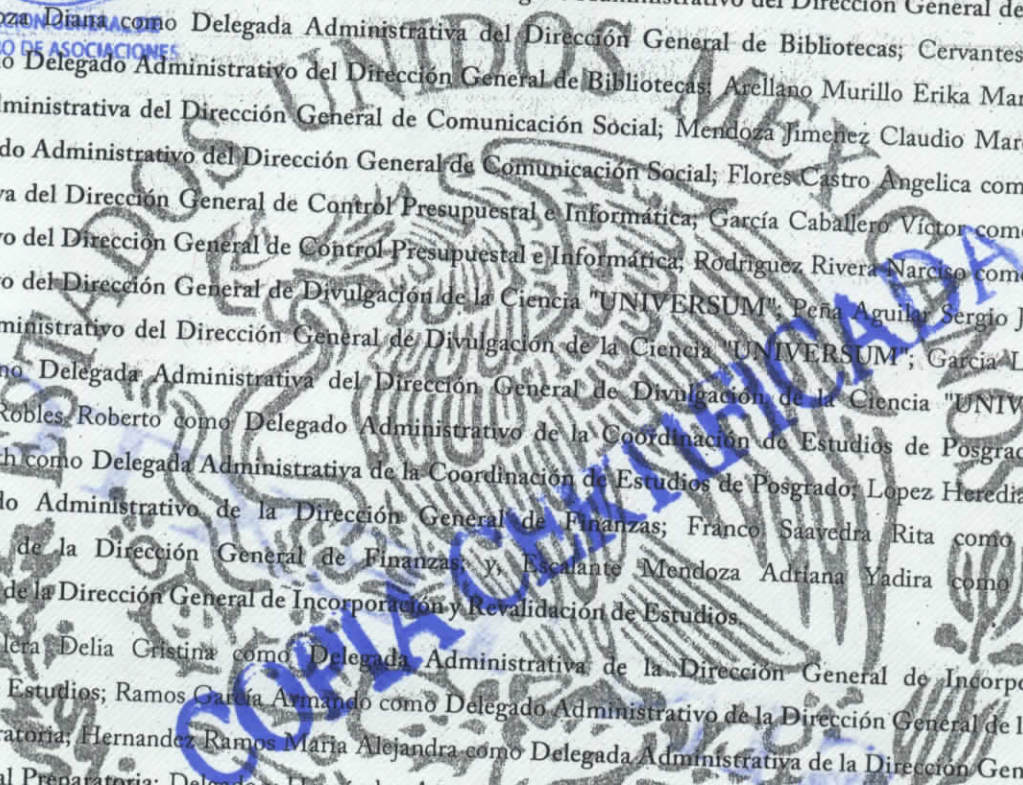 del Dirección General de
oza Diana como Delegada Administrativa del Dirección General de Bibliotecas; Cervantes
o Delegado Administrativo del Dirección General de Bibliotecas; Arellano Murillo Erika Mar
dministrativa del Dirección General de Comunicación Social; Mendoza Jimenez Claudio Marc
do Administrativo del Dirección General de Comunicación Social; Flores Castro Angelica com
va del Dirección General de Control Presupuestal e Informática; García Caballero Víctor como
vo del Dirección General de Control Presupuestal e Informática; Rodriguez Rivera Narciso como
o del Dirección General de Divulgación de la Ciencia "UNIVERSUM"; Peña Aguilar Sergio J
ministrativo del Dirección General de Divulgación de la Ciencia "UNIVERSUM"; Garcia L
no Delegada Administrativa del Dirección General de Divulgación de la Ciencia "UNIV
Robles Roberto como Delegado Administrativo de la Coordinación de Estudios de Posgrad
h como Delegada Administrativa de la Coordinación de Estudios de Posgrado; López Heredia
do Administrativo de la Dirección General de Finanzas; Franco Saavedra Rita como
de la Dirección General de Finanzas; y, Escalante Mendoza Adriana Yadira como
de la Dirección General de Incorporación y Revalidación de Estudios.
lera Delia Cristina como Delegada Administrativa de la Dirección General de Incorpo
Estudios; Ramos García Armando como Delegado Administrativo de la Dirección General de l
ratoria; Hernandez Ramos Maria Alejandra como Delegada Administrativa de la Dirección Gen
al Preparatoria;
ESTADOS UNIDOS MEXICANOS
COPIA CERTIFICADA
O DE ASOCIACIONES